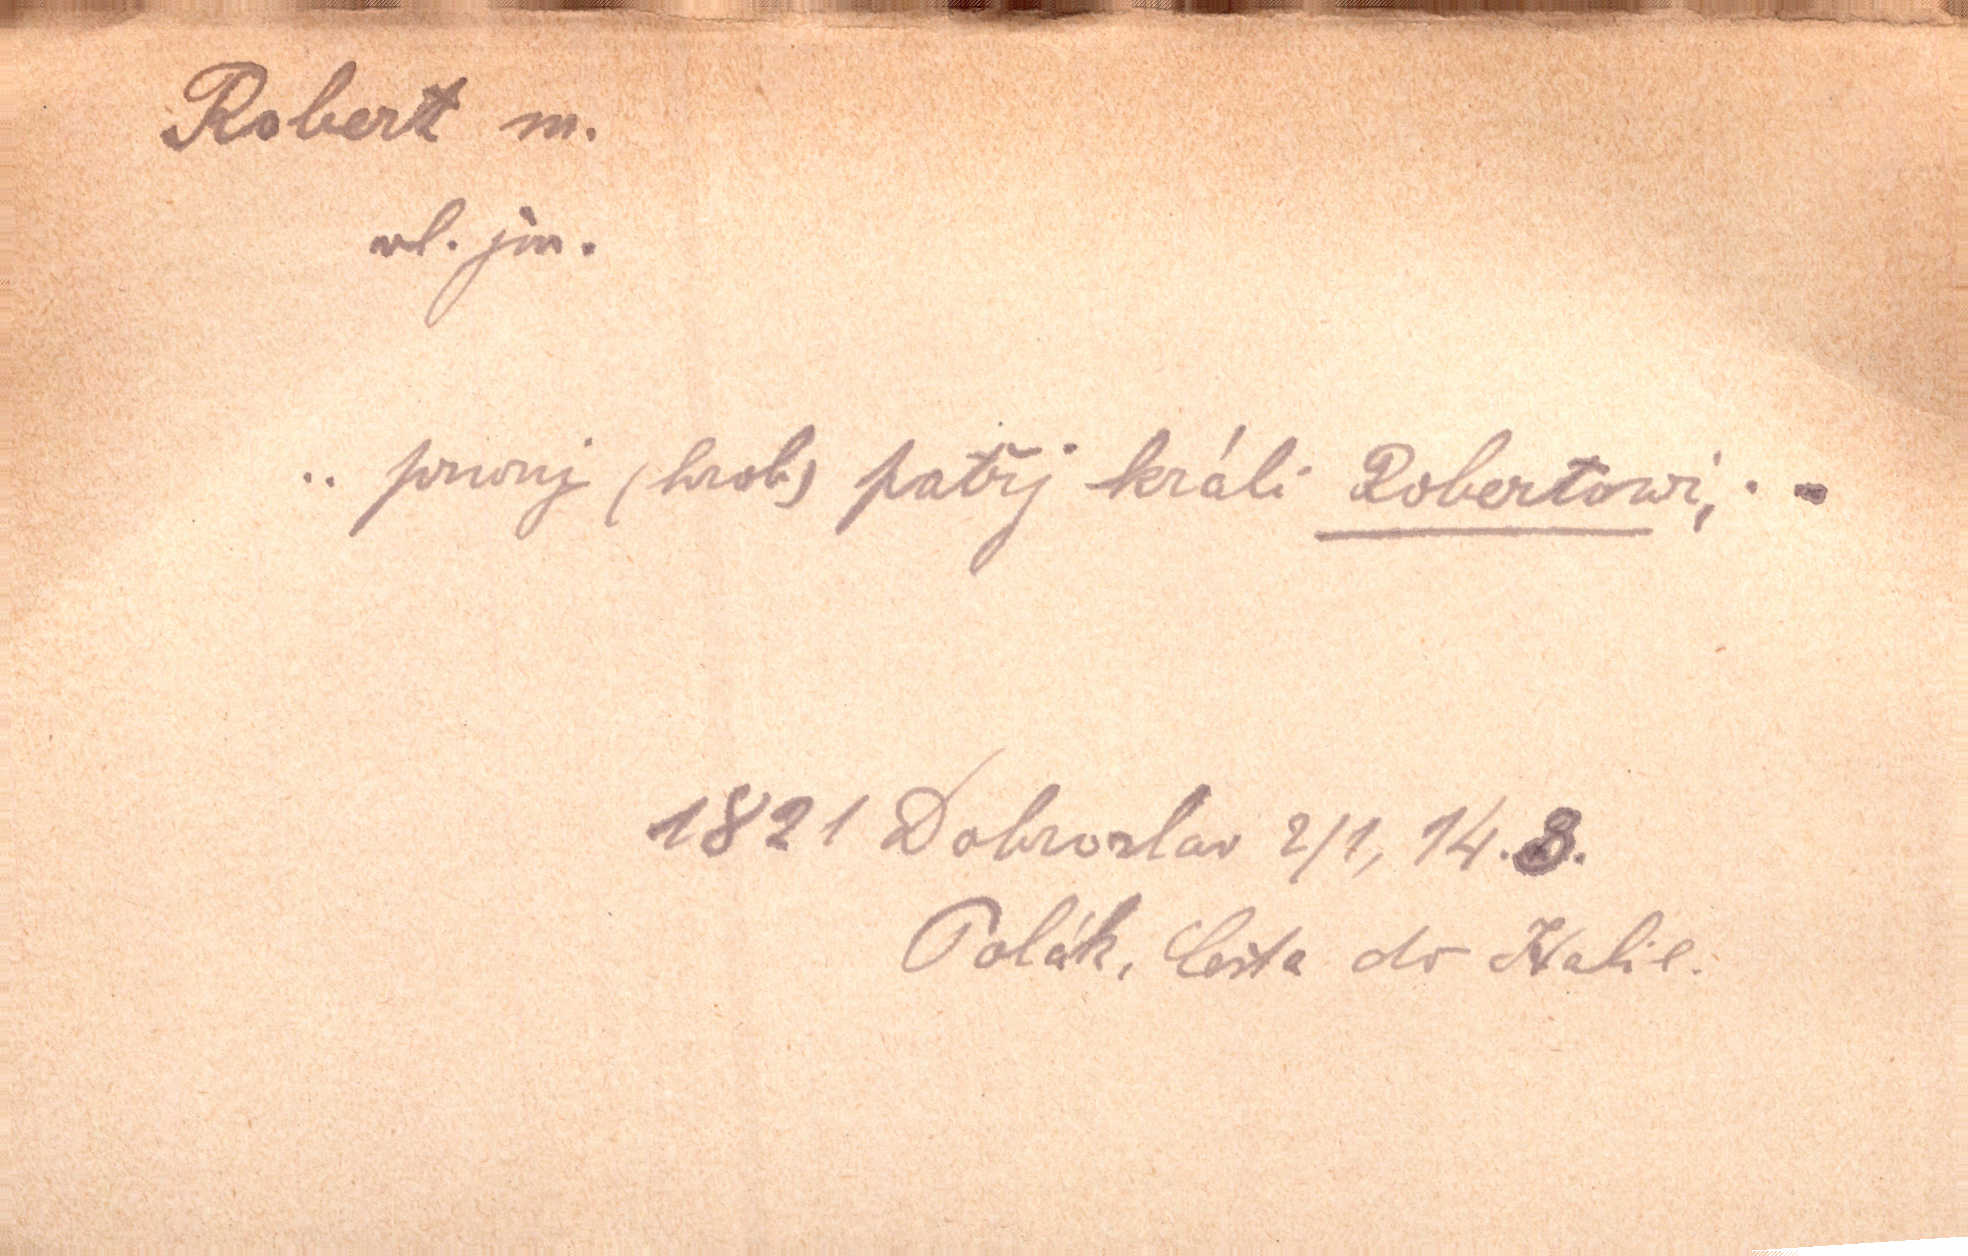 Robert m.
vl. jm.
.. prwnj (hrob) patřj králi Robertowi, . -
1821 Dobroslav 2/1, 14.8.
Polák, Cesta do Italie.